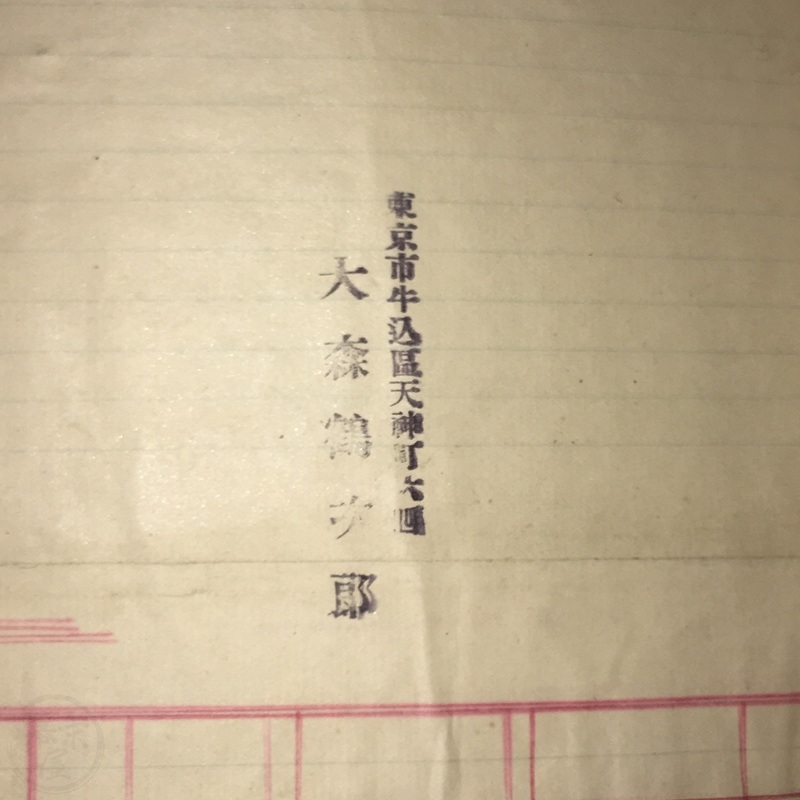 東京市牛込區天神町六四
大森鶴次郎